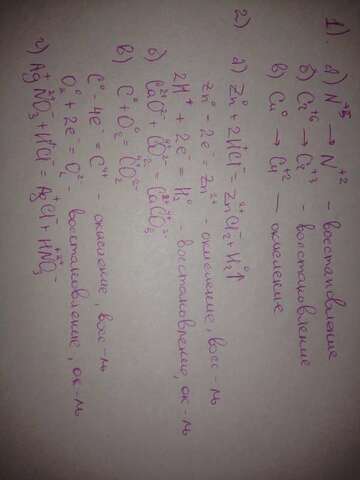 1). а) N⁺⁵ → N⁺² - восстановление
б) Cr⁺⁶ → Cr⁺³ - восстановление
в) Cu⁰ → Cu⁺² — окисление
2)
а) Zn⁰ + 2H⁺Cl⁻ = Zn²⁺Cl₂⁻ + H₂⁰↑
Zn⁰ - 2e⁻ = Zn²⁺ - окисление, восс-ль
2H⁺ + 2e⁻ = H₂⁰ - восстановление, ок-ль
б) Ca²⁺O²⁻ + C⁴⁺O₂²⁻ = Ca²⁺C⁴⁺O₃²⁻
в) C⁰ + O₂⁰ = C⁴⁺O₂²⁻
C⁰ - 4e⁻ = C⁴⁺ - окисление, восс-ль
O₂⁰ + 2e⁻ = O₂²⁻ - восстановление, ок-ль
г) AgNO₃ + HCl = AgCl + HNO₃